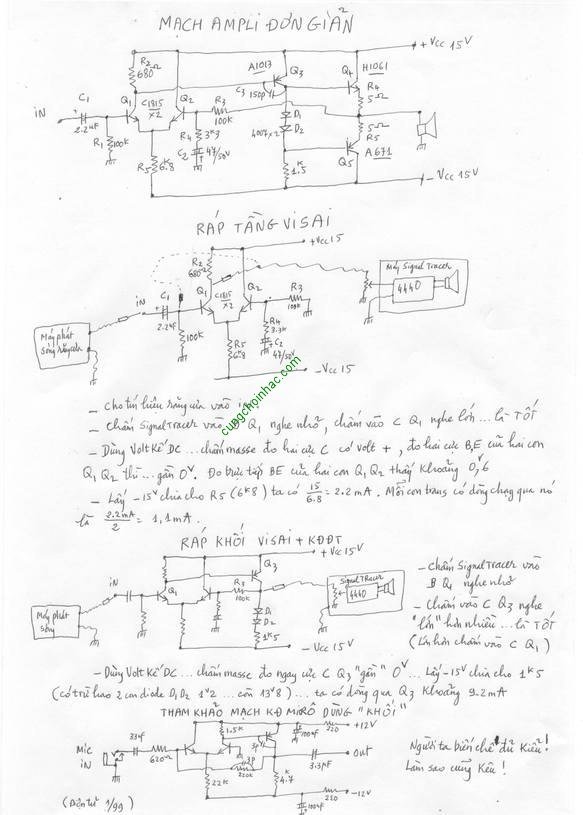 MẠCH AMPLI ĐƠN GIẢN
+Vcc 15V
R2
680Ω
A1013
Q3
H1061
Q4
R4
5Ω
C3
150p
iN
C1
2.2uF
Q1
C1815
x2
Q2
R3
100K
R1
100K
R4
3K3
C2
47/50V
D1
D2
4007x2
5Ω
R5
Q5
A671
R5
6K8
1K5
-Vcc 15V
RÁP TẦNG VISAI
+Vcc15
R2
680Ω
Máy Signal Tracer
4440
iN
C1
2.2uF
Q1
C1815
x2
Q2
R3
100K
100K
R4
3.3K
C2
47/50V
R5
6K8
Máy phát
sóng răng cưa
-Vcc 15
cungchoinhac.com
- Cho tín hiệu răng cưa vào in
- Chấm Signal Tracer vào Q1 nghe nhỏ, chấm vào C Q1 nghe lớn... là TỐT
- Dùng Volt Kế DC... chấm masse đo hai cực C có volt +, đo hai cực B,E của hai con
Q1 Q2 thì... gần 0V. Đo trực tiếp BE của hai con Q1 Q2 thấy khoảng 0V6
- Lấy -15V chia cho R5 (6K8) ta có 15/6.8 = 2.2mA. Mỗi con trans có dòng chạy qua nó
là 2.2mA/2 = 1,1mA.
RÁP KHỐI VISAI + KĐĐT
+Vcc 15V
Q3
iN
Q1
R3
100K
D1
D2
1K5
Signal Tracer
4440
Máy phát
sóng
-Vcc 15V
- Chấm Signal Tracer vào
B Q1 nghe nhỏ
- Chấm vào C Q3 nghe
"lớn" hơn nhiều... là TỐT
(Lớn hơn chấm vào C Q1)
- Dùng Volt Kế DC... chấm masse đo ngay cực C Q3 "gần" 0V... Lấy -15V chia cho 1K5
(có trừ hao 2 con diode D1 D2 1V2... còn 13V8)... ta có dòng qua Q3 khoảng 9.2mA
THAM KHẢO MẠCH KĐ MICRÔ DÙNG "KHỐI"
220
+12V
100uF
1.5K
3p
Mic
iN
33uF
620Ω
3p
220K
3.3uF
Out
22K
4.7K
220
-12V
100uF
(Điện tử 1/99)
Người ta biến chế đủ Kiểu!
Làm sao cũng Kêu!